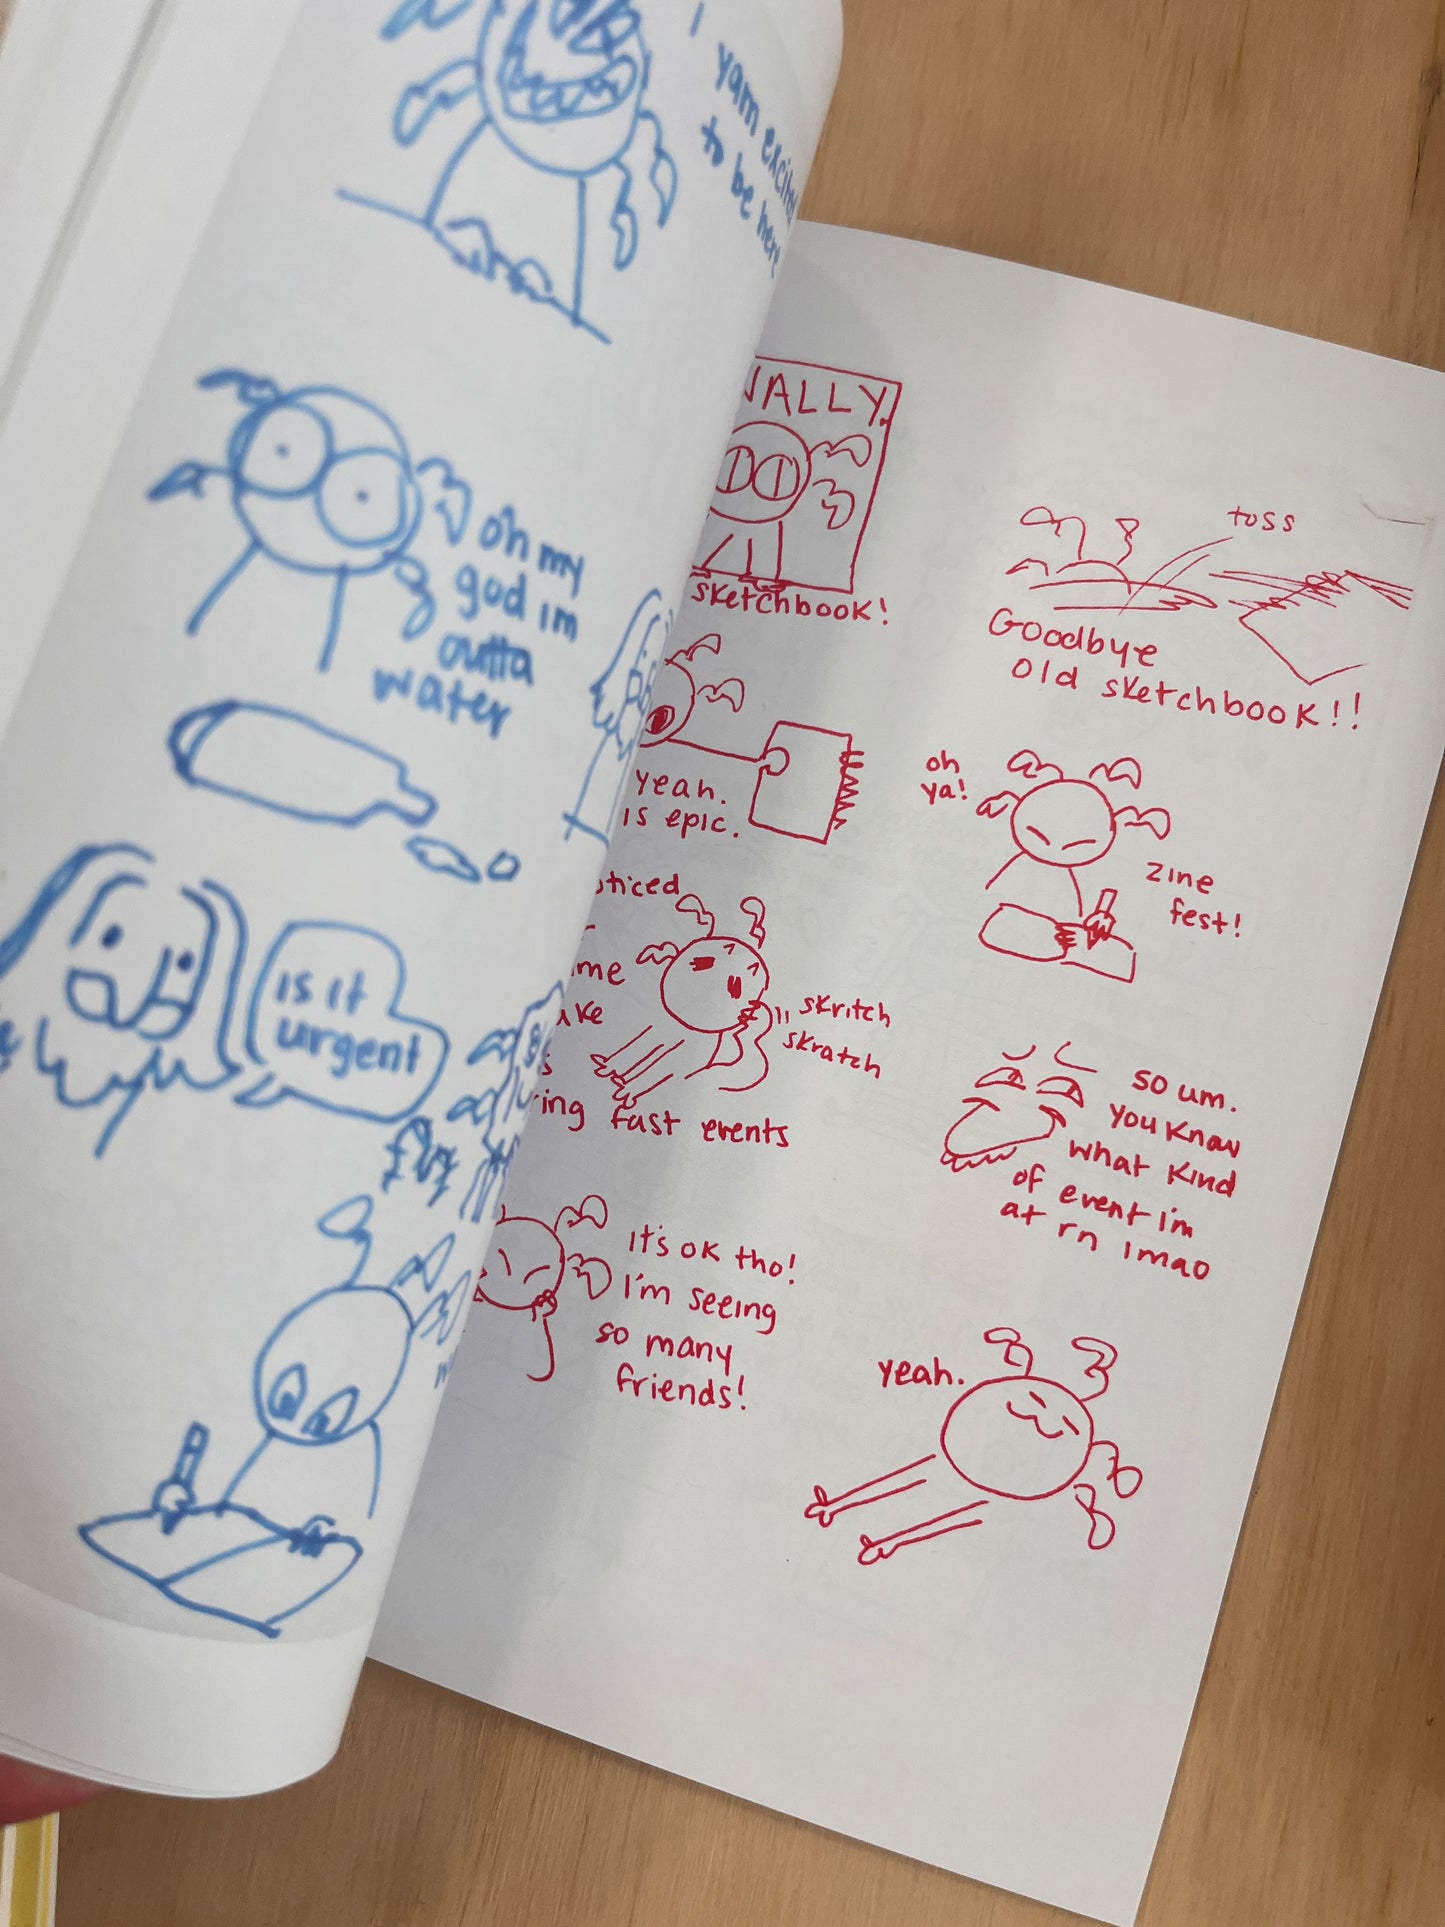 I
yam excited
to be here
oh my
god im
outta
water
is it
urgent
sketchbook!
toss
Goodbye
old sketchbook!!
yeah.
is epic.
oh
ya!
zine
fest!
skritch
skratch
fast events
so um.
you know
what kind
of event i'm
at rn lmao
it's ok tho!
I'm seeing
so many
friends!
yeah.